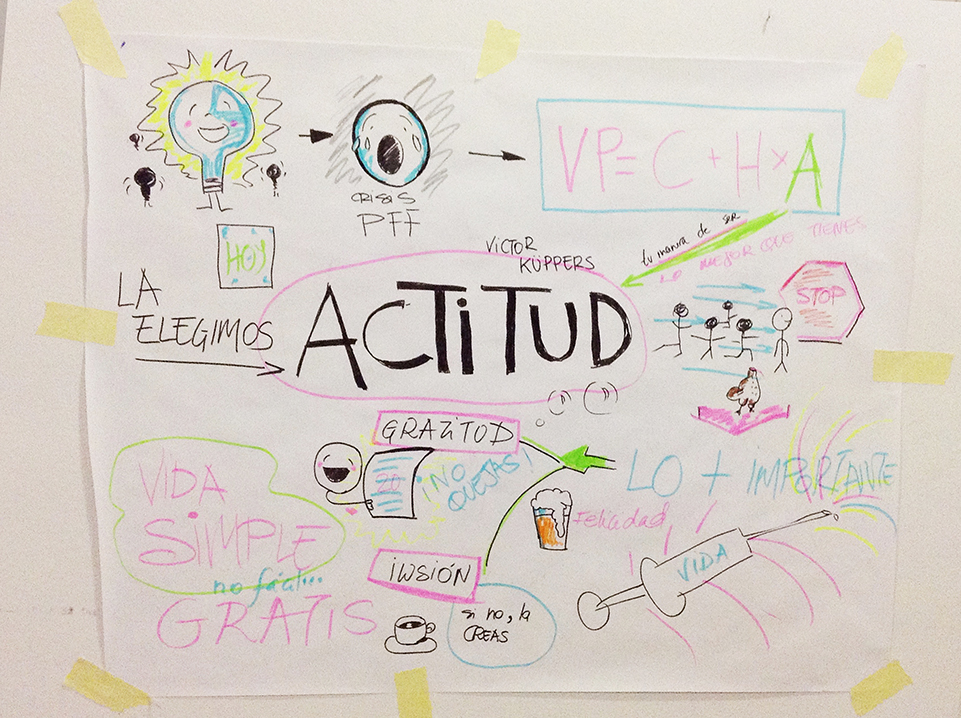 CRISIS
PFF
VP = C + H x A
HOY
tu manera de ser
LO MEJOR QUE TIENES
VICTOR
KÜPPERS
LA
ELEGIMOS
ACTITUD
STOP
GRATITUD
¡NO
QUEJAS!
20
LO + IMPORTANTE
VIDA
SIMPLE
no fácil...
GRATIS
Felicidad
VIDA
ILUSIÓN
si no, la
CREAS